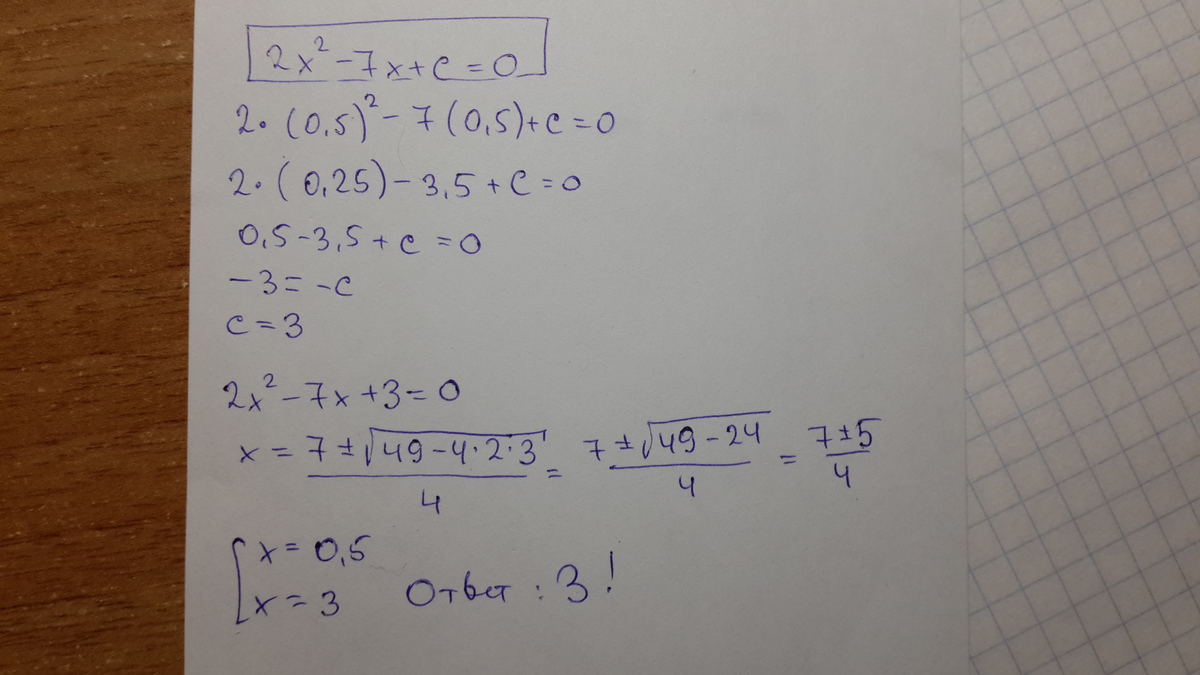 2x² - 7x + c = 0
2·(0,5)² - 7(0,5) + c = 0
2·(0,25) - 3,5 + c = 0
0,5 - 3,5 + c = 0
-3 = -c
c = 3
2x² - 7x + 3 = 0
x = (7 ± √(49 - 4·2·3))/4 = (7 ± √(49 - 24))/4 = (7 ± 5)/4
[ x = 0,5
x = 3 Ответ : 3!